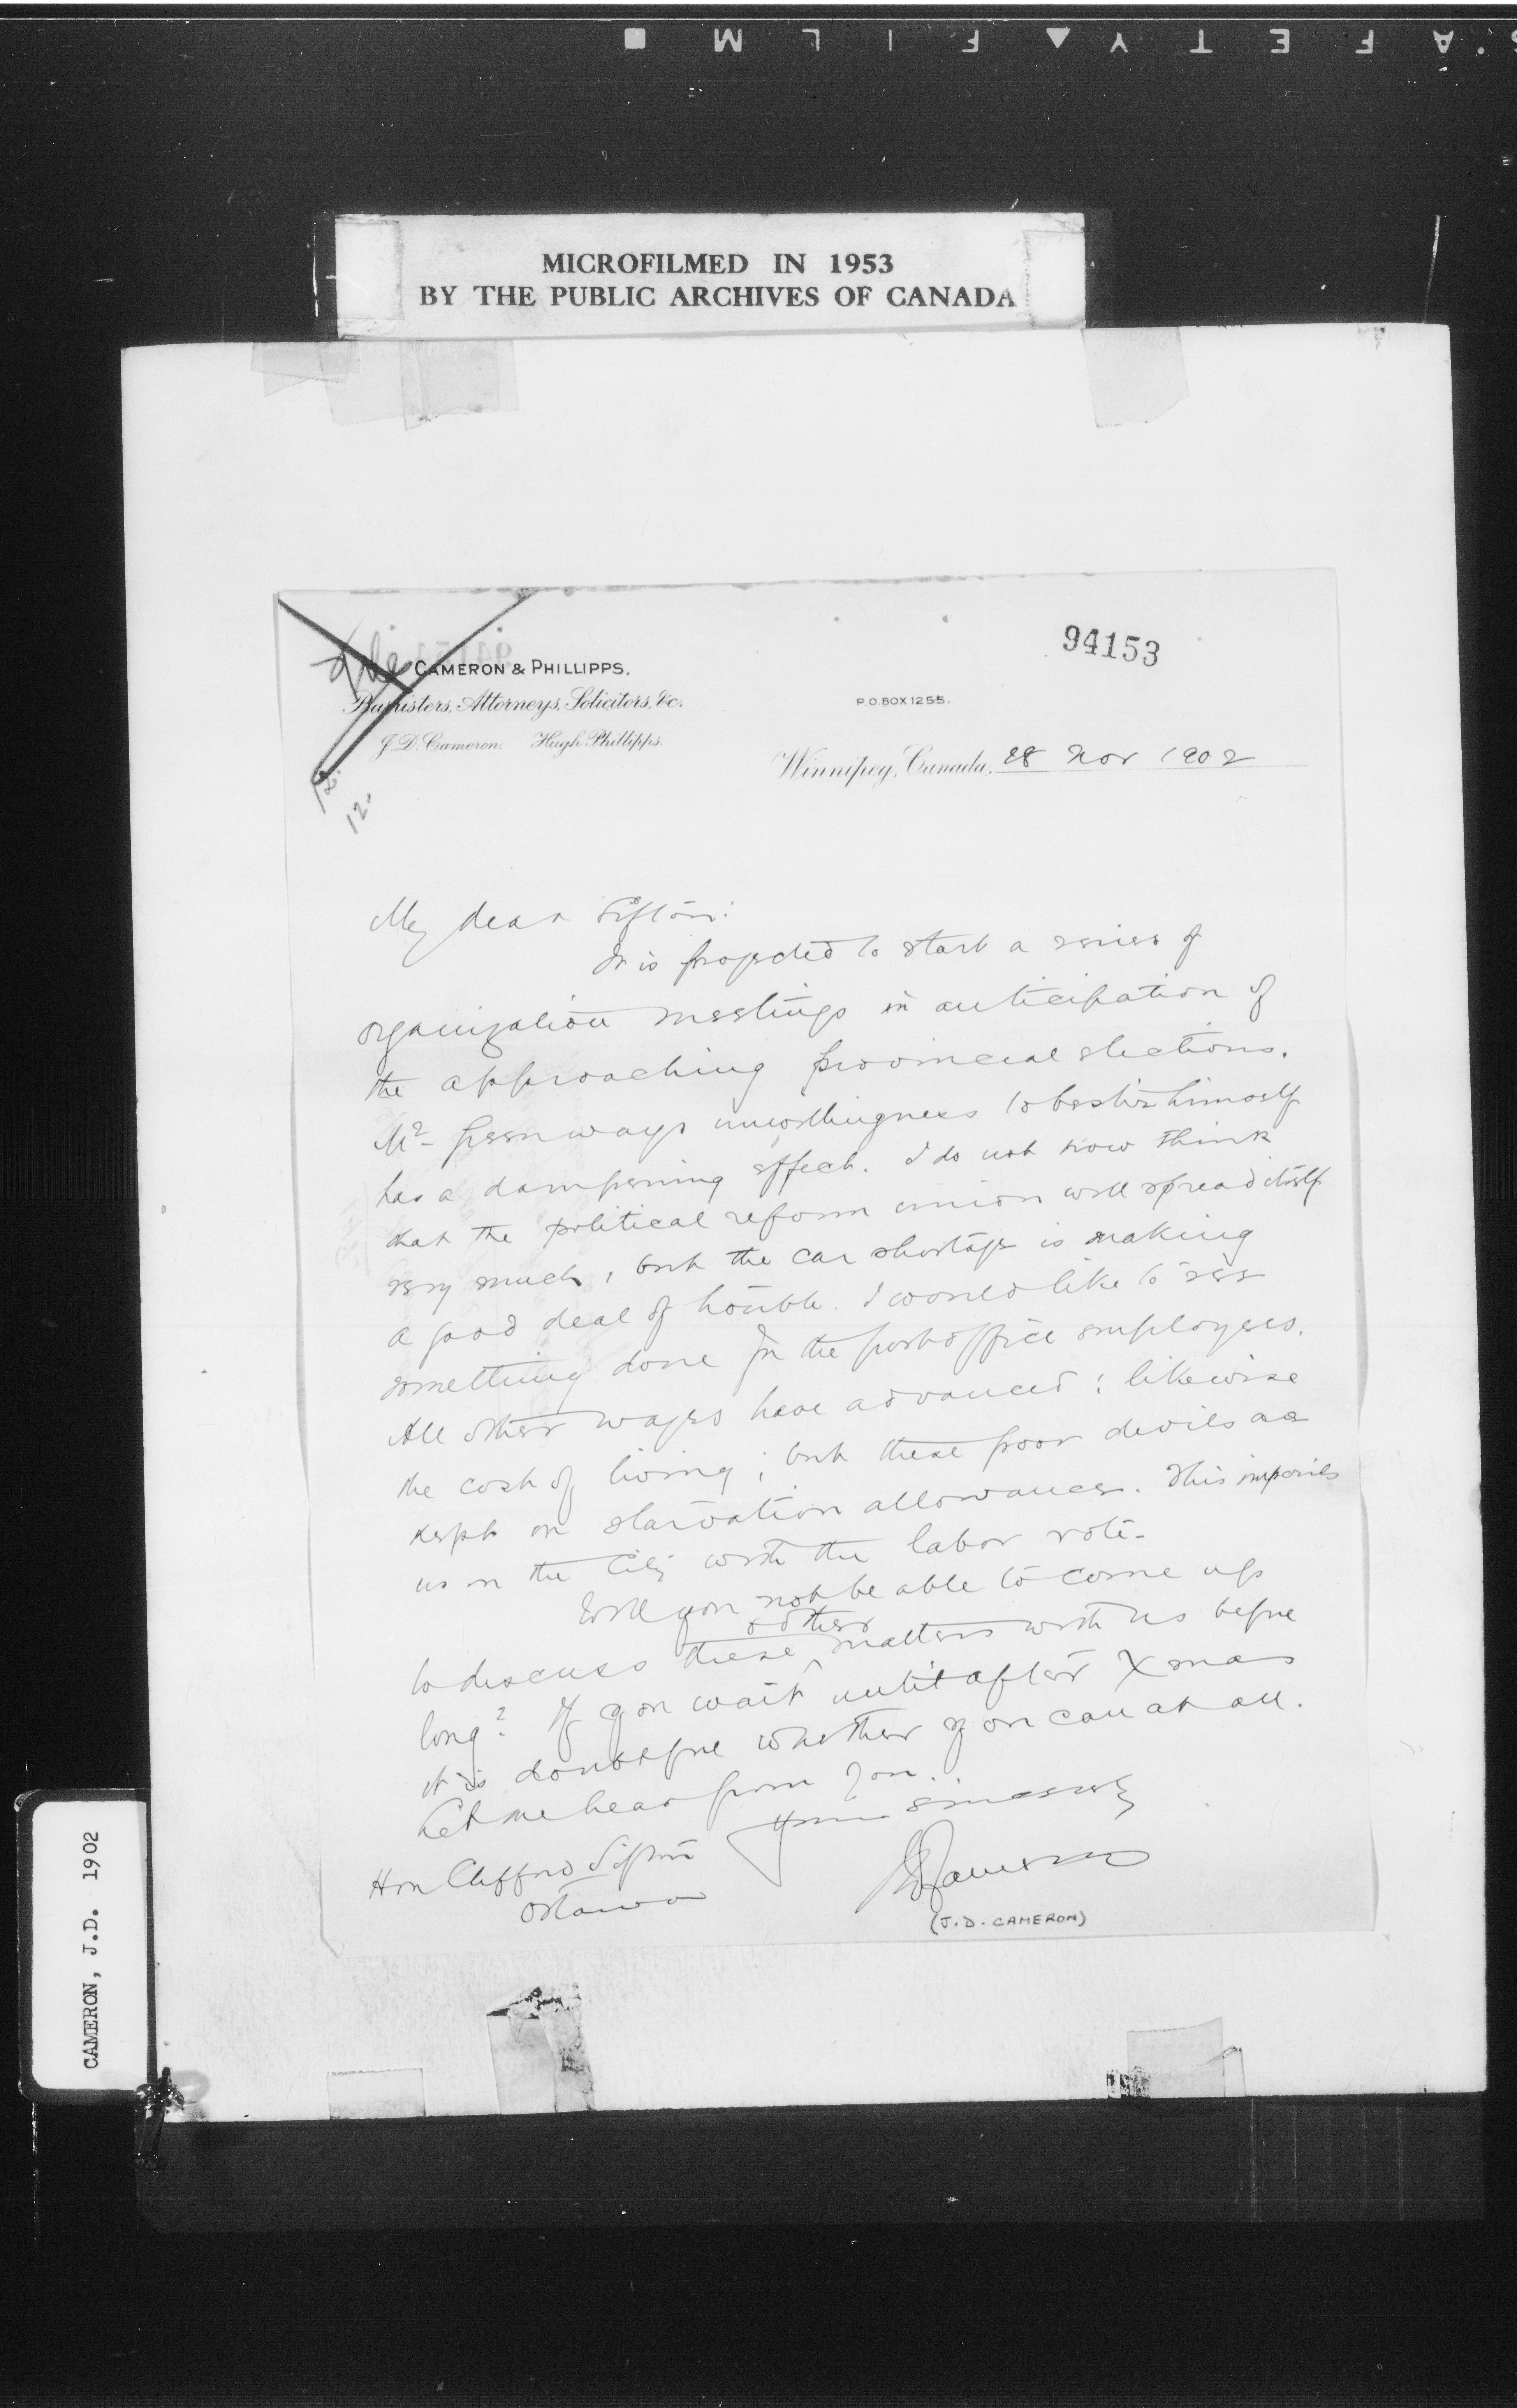 SAFETY▲FILM■
MICROFILMED IN 1953
BY THE PUBLIC ARCHIVES OF CANADA
94153
CAMERON & PHILLIPPS.
Barristers, Attorneys, Solicitors, &c.
P.O. BOX 1255.
J. D. Cameron. Hugh Phillipps.
Winnipeg, Canada, 28 Nov 1902
12.
My dear Sifton:
It is projected to start a series of
organization meetings in anticipation of
the approaching provincial elections.
Mr Greenways unwillingness to bestir himself
has a dampening effect. I do not now think
that the political reform union will spread itself
very much, but the car shortage is making
a good deal of trouble. I would like to see
something done for the post office employees.
All other wages have advanced; likewise
the cost of living; but these poor devils are
kept on starvation allowances. This imperils
us in the City with the labor vote.
Will you not be able to come up
to discuss these & other matters with us before
long? If you wait until after Xmas
it is doubtful whether you can at all.
Let me hear from you.
Yours sincerely
Hon Clifford Sifton
JDCameron
Ottawa
(J.D. CAMERON)
CAMERON, J.D. 1902